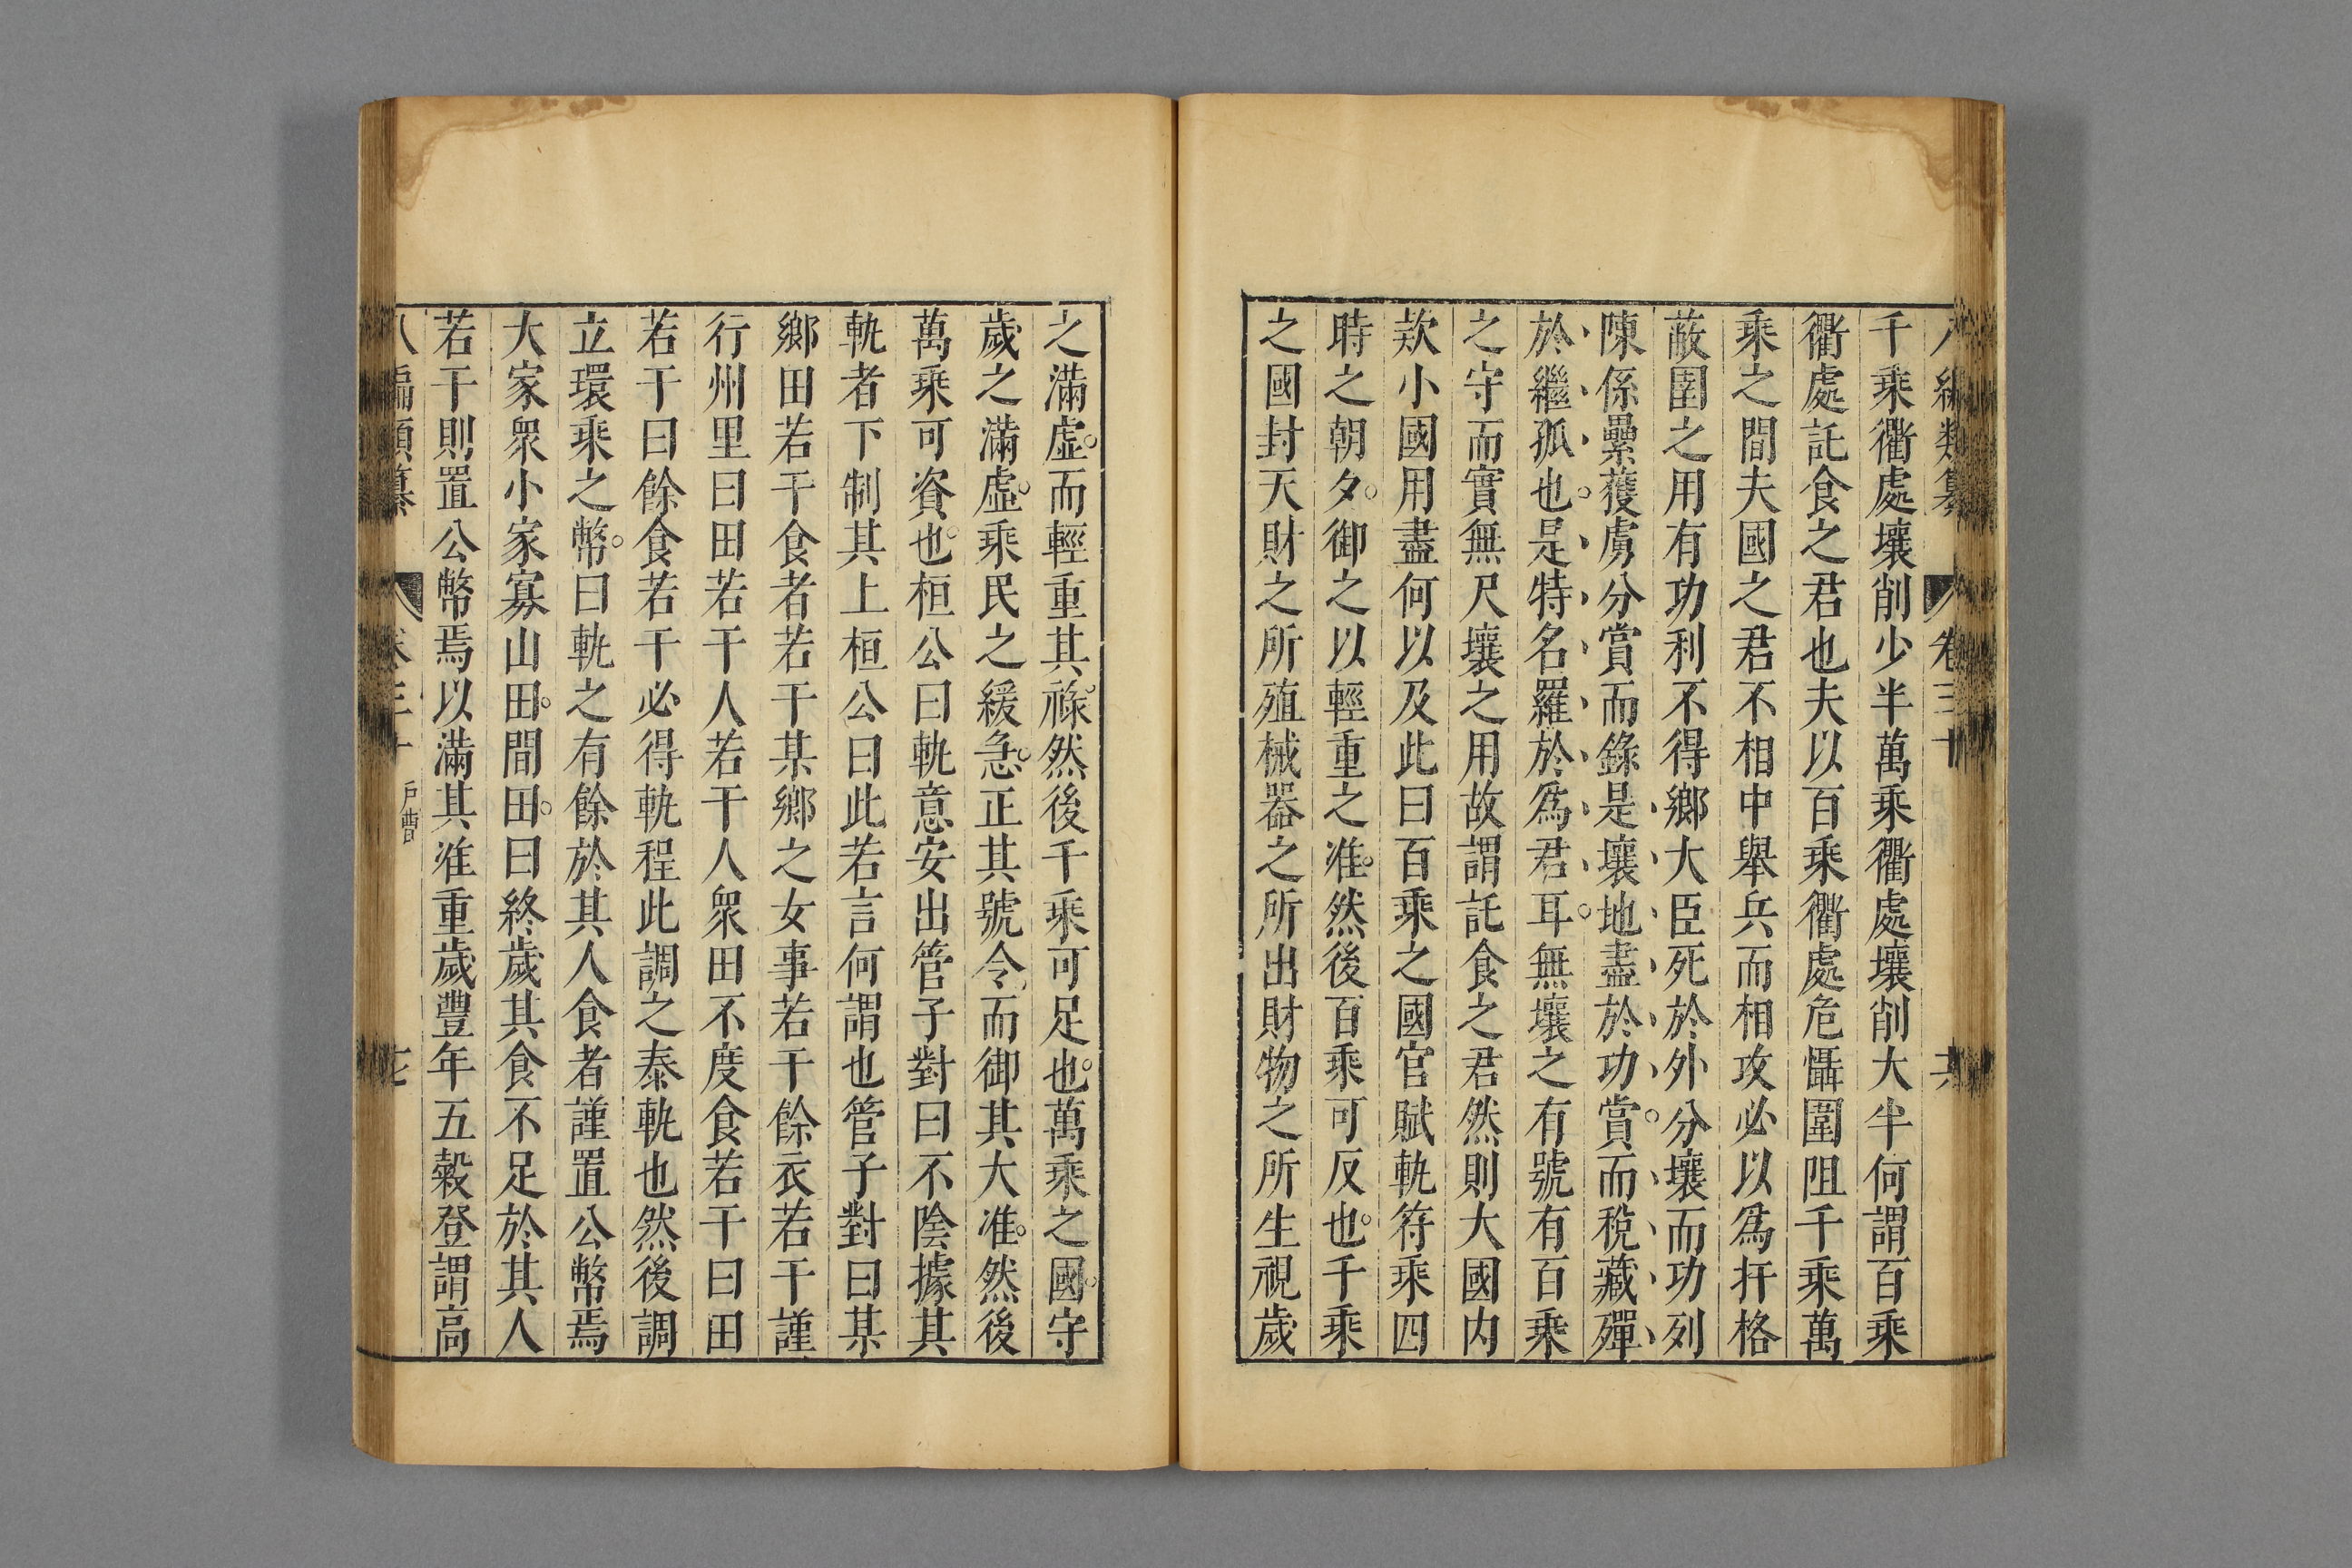 八編類纂 卷三十 共
千乘衢處壤削少半萬乘衢處壤削大半何謂百乘
衢處託食之君也夫以百乘衢處危懾圍阻千乘萬
乘之間夫國之君不相中舉兵而相攻必以爲扞格
蔽圉之用有功利不得鄉大臣死於外分壤而功列
陳係纍獲虜分賞而錄是壤地盡於功賞而稅藏殫
於繼孤也是特名羅於爲君耳無壤之有號有百乘
之守而實無尺壤之用故謂託食之君然則大國内
欵小國用盡何以及此曰百乘之國官賦軌符乘四
時之朝夕御之以輕重之准然後百乘可反也千乘
之國封天財之所殖械器之所出財物之所生視歲
之滿虛而輕重其祿然後千乘可足也萬乘之國守
歲之滿虛乘民之緩急正其號令而御其大准然後
萬乘可資也桓公曰軌意安出管子對曰不陰據其
軌者下制其上桓公曰此若言何謂也管子對曰某
鄉田若干食者若干某鄉之女事若干餘衣若干謹
行州里曰田若干人若干人衆田不度食若干曰田
若干曰餘食若干必得軌程此調之泰軌也然後調
立環乘之幣曰軌之有餘於其人食者謹置公幣焉
大家衆小家寡山田間田曰終歲其食不足於其人
若干則置公幣焉以滿其准重歲豐年五穀登謂高
八編類纂 卷三十 戸曹 七